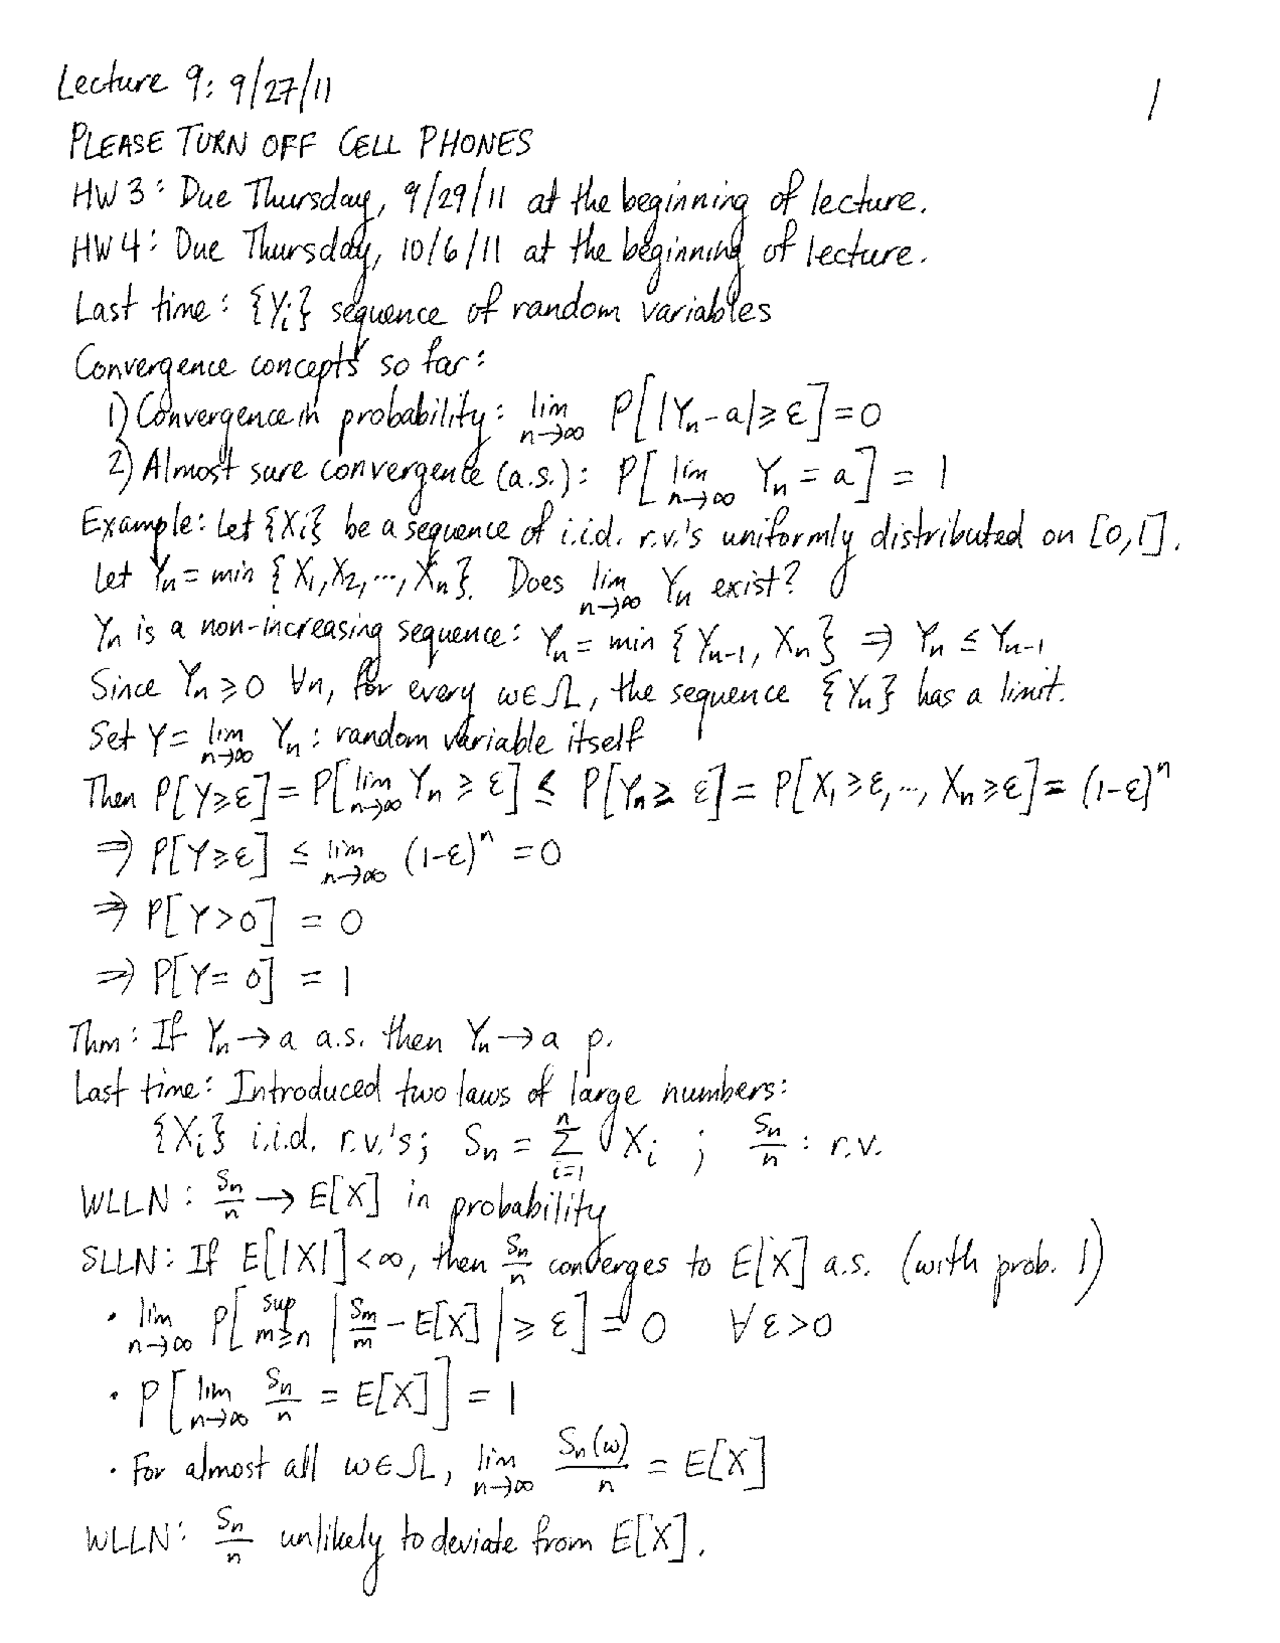 Lecture 9: 9/27/11
1
PLEASE TURN OFF CELL PHONES
HW 3: Due Thursday, 9/29/11 at the beginning of lecture.
HW 4: Due Thursday, 10/6/11 at the beginning of lecture.
Last time: {Yᵢ} sequence of random variables
Convergence concepts so far:
1) Convergence in probability: lim n→∞ P[|Yₙ-a|≥ε]=0
2) Almost sure convergence (a.s.): P[lim n→∞ Yₙ = a] = 1
Example: Let {Xᵢ} be a sequence of i.i.d. r.v.'s uniformly distributed on [0,1].
Let Yₙ = min {X₁,X₂,...,Xₙ}. Does lim n→∞ Yₙ exist?
Yₙ is a non-increasing sequence: Yₙ = min {Yₙ₋₁, Xₙ} ⇒ Yₙ ≤ Yₙ₋₁
Since Yₙ≥0 ∀n, for every ω∈Ω, the sequence {Yₙ} has a limit.
Set Y = lim n→∞ Yₙ: random variable itself
Then P[Y≥ε] = P[lim n→∞ Yₙ ≥ ε] ≤ P[Yₙ ≥ ε] = P[X₁≥ε,..., Xₙ≥ε] = (1-ε)ⁿ
⇒ P[Y≥ε] ≤ lim n→∞ (1-ε)ⁿ = 0
⇒ P[Y>0] = 0
⇒ P[Y=0] = 1
Thm: If Yₙ → a a.s. then Yₙ → a p.
Last time: Introduced two laws of large numbers:
{Xᵢ} i.i.d. r.v.'s; Sₙ = Σ i=1 n Xᵢ ; Sₙ/n : r.v.
WLLN: Sₙ/n → E[X] in probability
SLLN: If E[|X|]<∞, then Sₙ/n converges to E[X] a.s. (with prob. 1)
• lim n→∞ P[sup m≥n |Sₘ/m - E[X]| ≥ ε] = 0 ∀ε>0
• P[lim n→∞ Sₙ/n = E[X]] = 1
• For almost all ω∈Ω, lim n→∞ Sₙ(ω)/n = E[X]
WLLN: Sₙ/n unlikely to deviate from E[X].